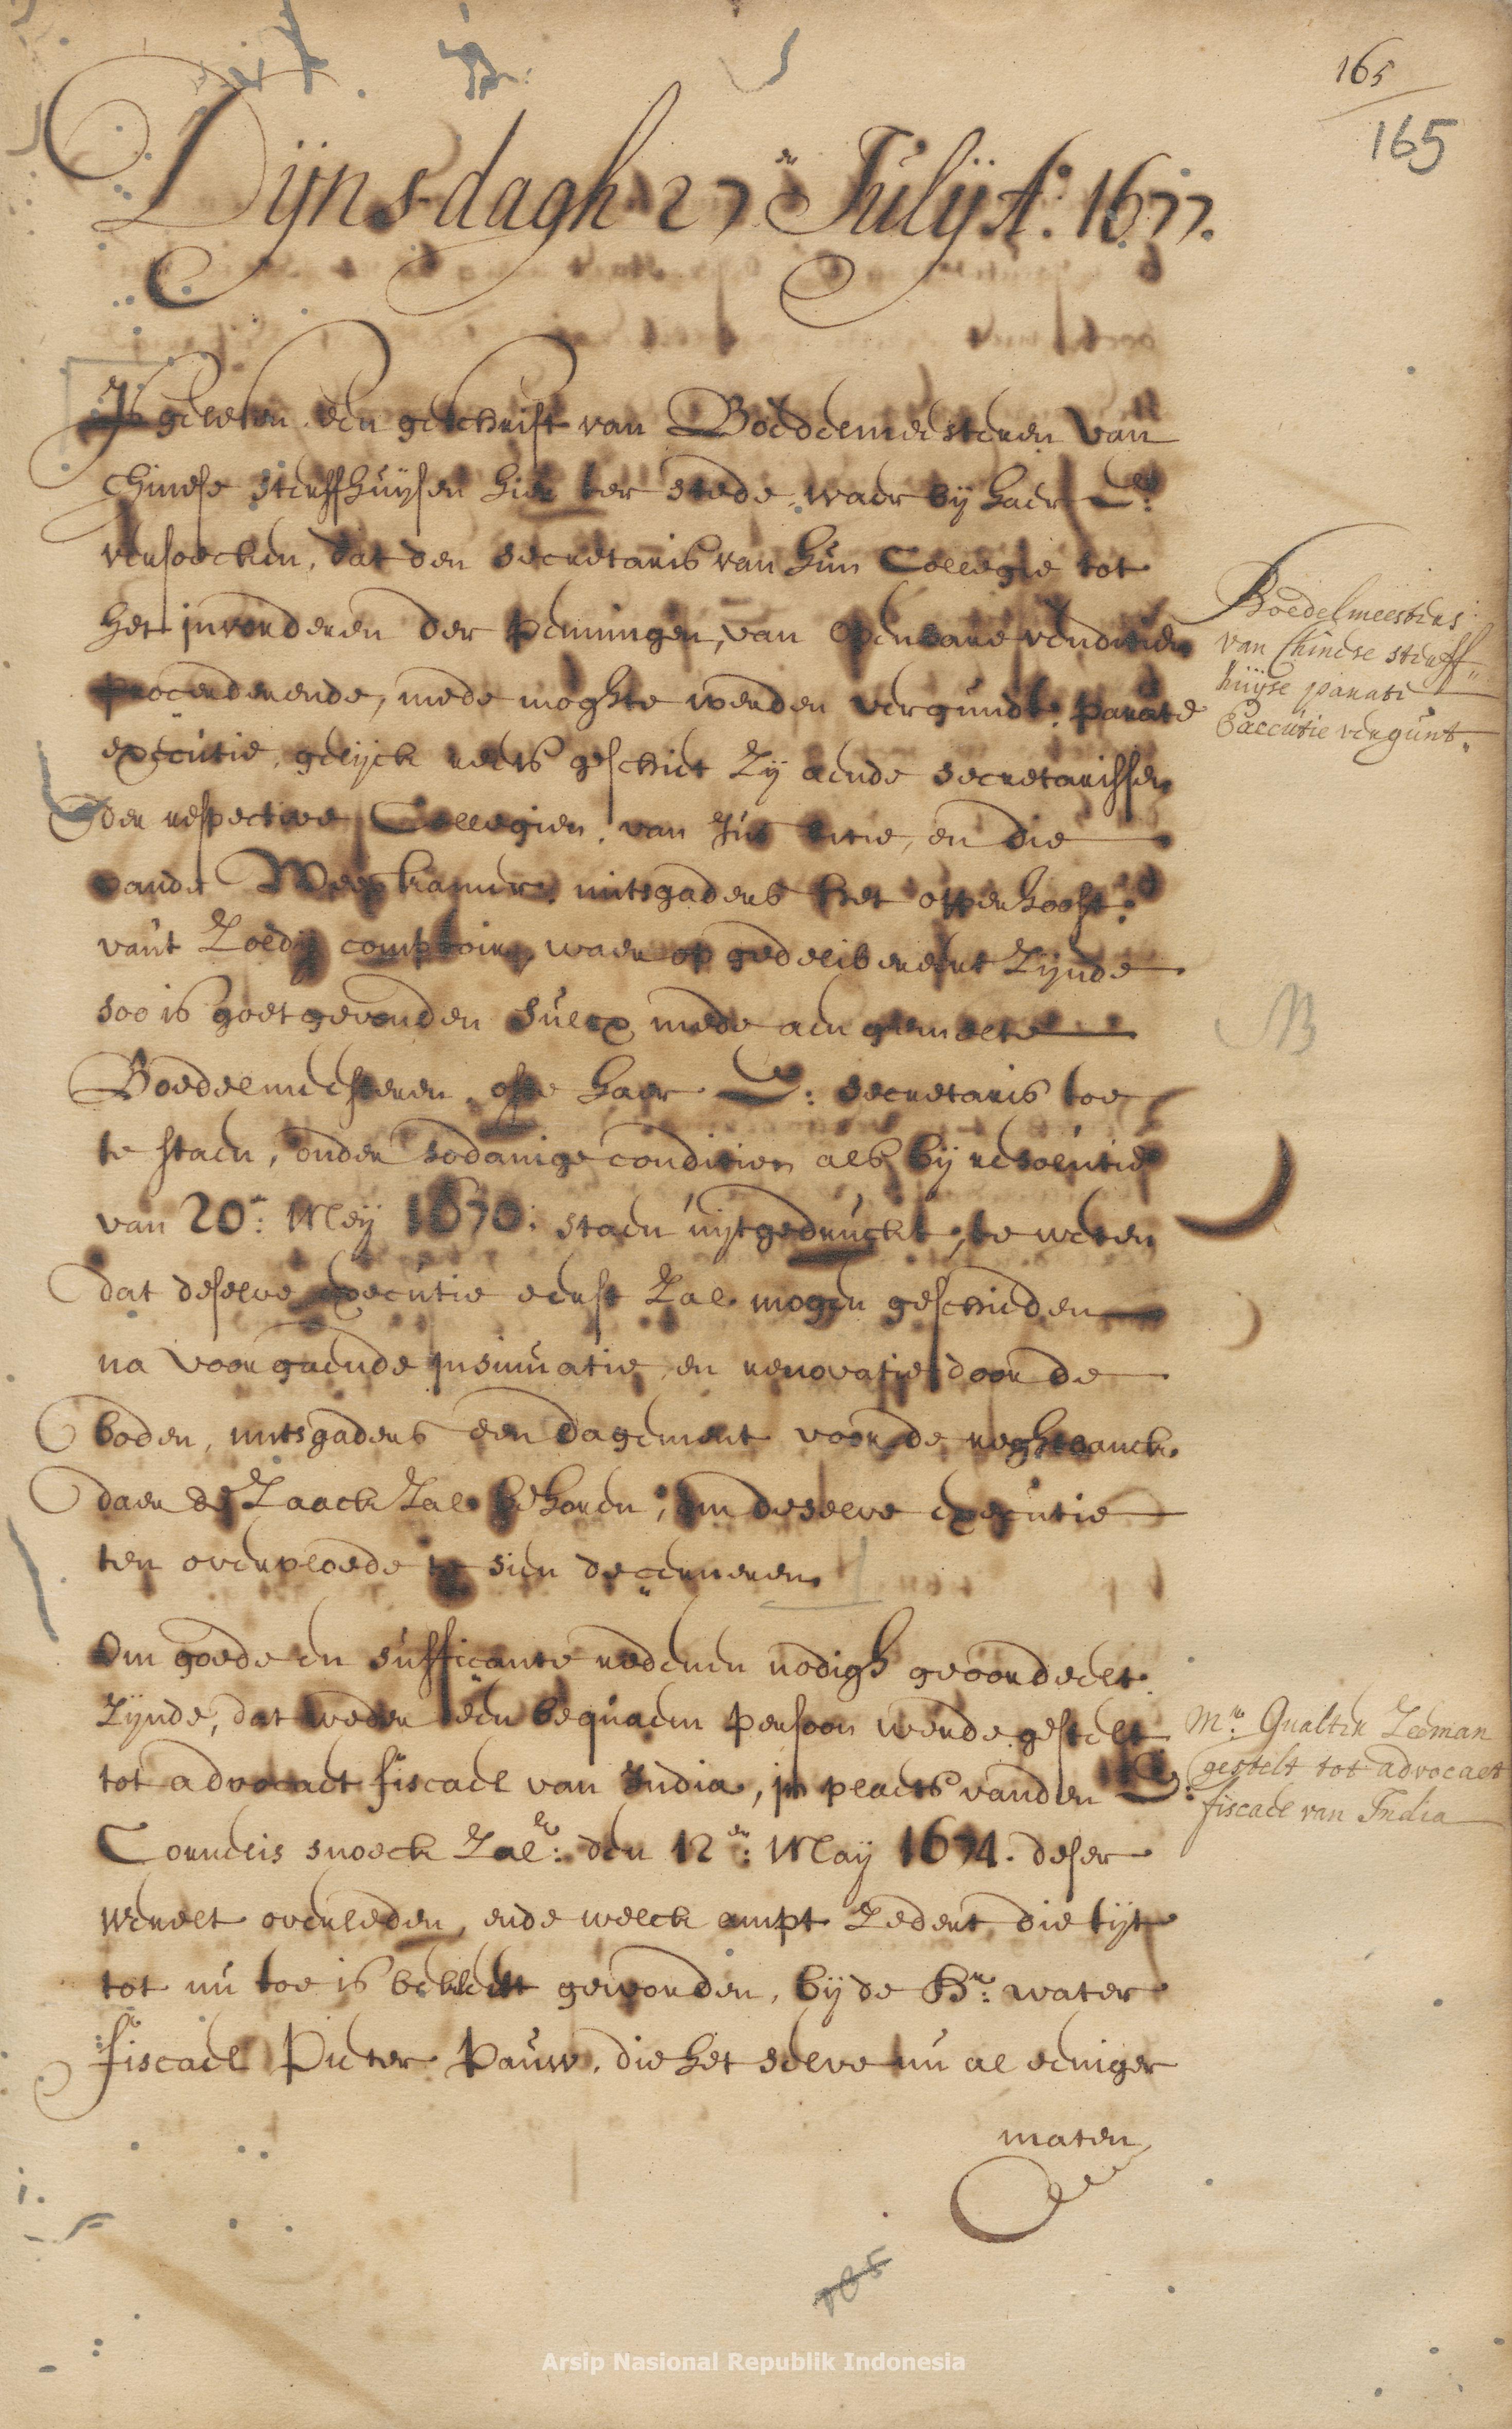 165
165
Dijnsdagh 27en Julij Ao. 1677.
Is gelesen een geschrift van Boedelmeesteren van
Chinese sterffhuijsen hier ter stede, waer bij haer E:
versoecken, dat den secretaris van hun Collegie tot
het invorderen der penningen, van openbare venditien
procederende, mede moghte werden vergundt, parate
executie, gelijck reets geschiet zij aende secretarissen
der respective Collegien, van Justitie, en die
vande Weeskamer, mitsgaders het opperhooft
vant Zoldij comptoir, waer op gedelibereert zijnde
soo is goetgevonden sulcx mede aen gemelte
Boedelmeesteren, ofte haer E: secretaris toe
te staen, onder sodanige conditien als bij resolutie
van 20en: Meij 1670: staen uijtgedruckt, te weten
dat deselve executie eerst zal mogen geschieden
na voorgaende insinuatie en renovatie door de
boden, mitsgaders een dagement voor de reghtbanck
daer de zaack zal behoren, om deselve executie
ten overvloede te sien decerneren.
Boedelmeesters
van Chinese sterff-
huijse parate
Executie vergunt.
Om goede en sufficante redenen nodigh geoordeelt
zijnde, dat weder een bequaem persoon werde gestelt
tot advocaet fiscael van India, in plaets vanden E:
Cornelis snoeck zalr: den 12en: Maij 1674. deser
werelt overleden, ende welck ampt zedert die tijt
tot nu toe is bekleet geworden, bij de Hr: water
fiscael Pieter Pauw, die het selve nu al eeniger
maten
Mr. Gualter Zeeman
gestelt tot advocaet
fiscael van India
165
Arsip Nasional Republik Indonesia